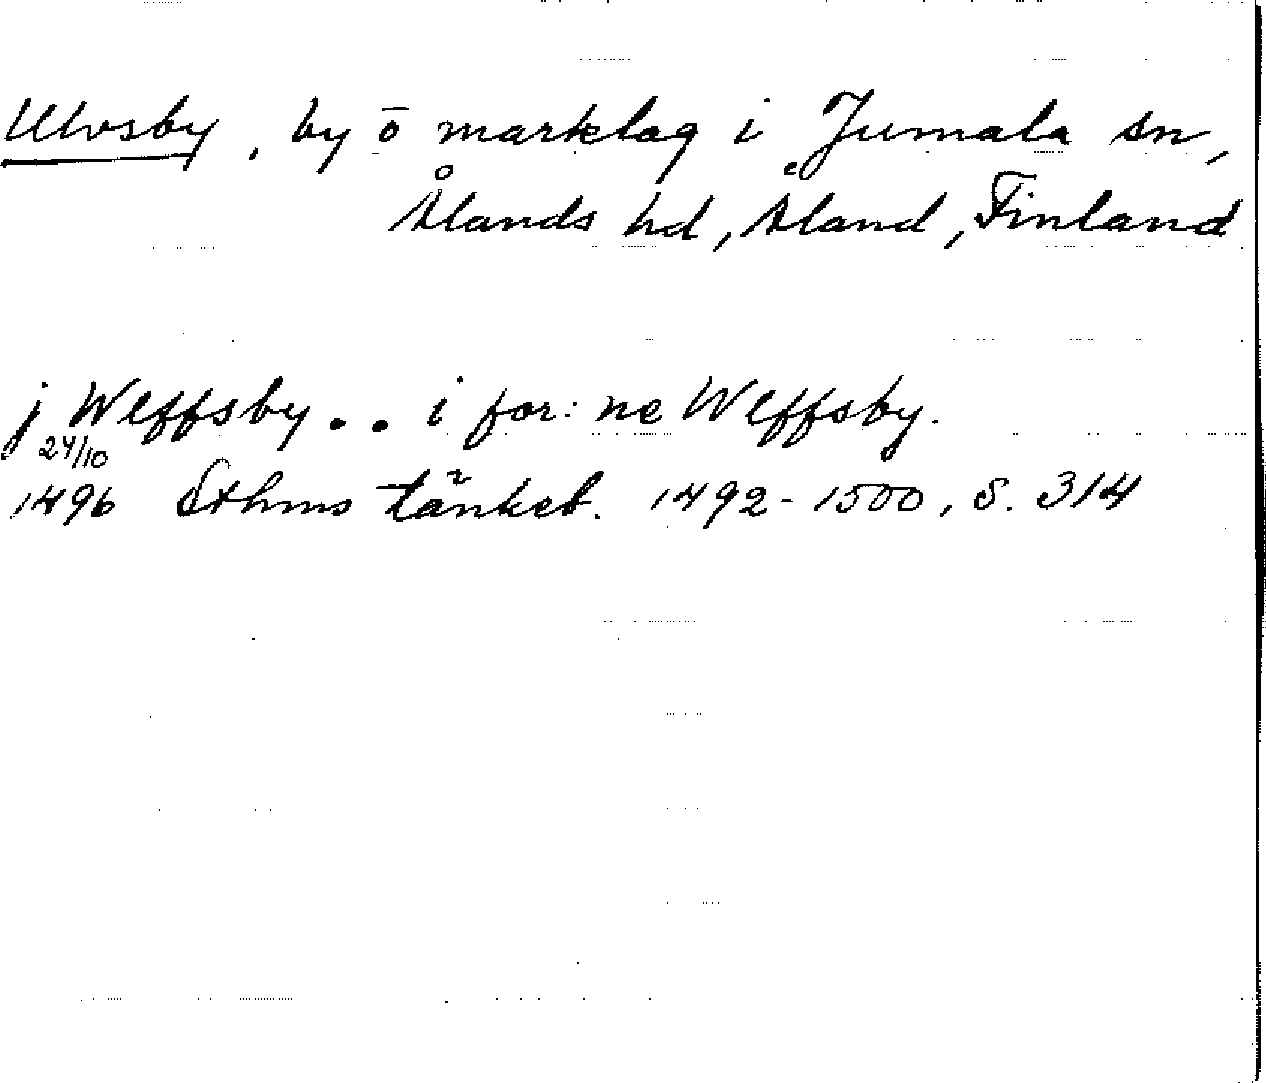 Ulvsby, by o marklag i Jumala sn,
Ålands hd, Åland, Finland
j Wlffsby.. i for:ne Wlffsby.
24/10
1496 Sthms tänkeb. 1492-1500, S. 314